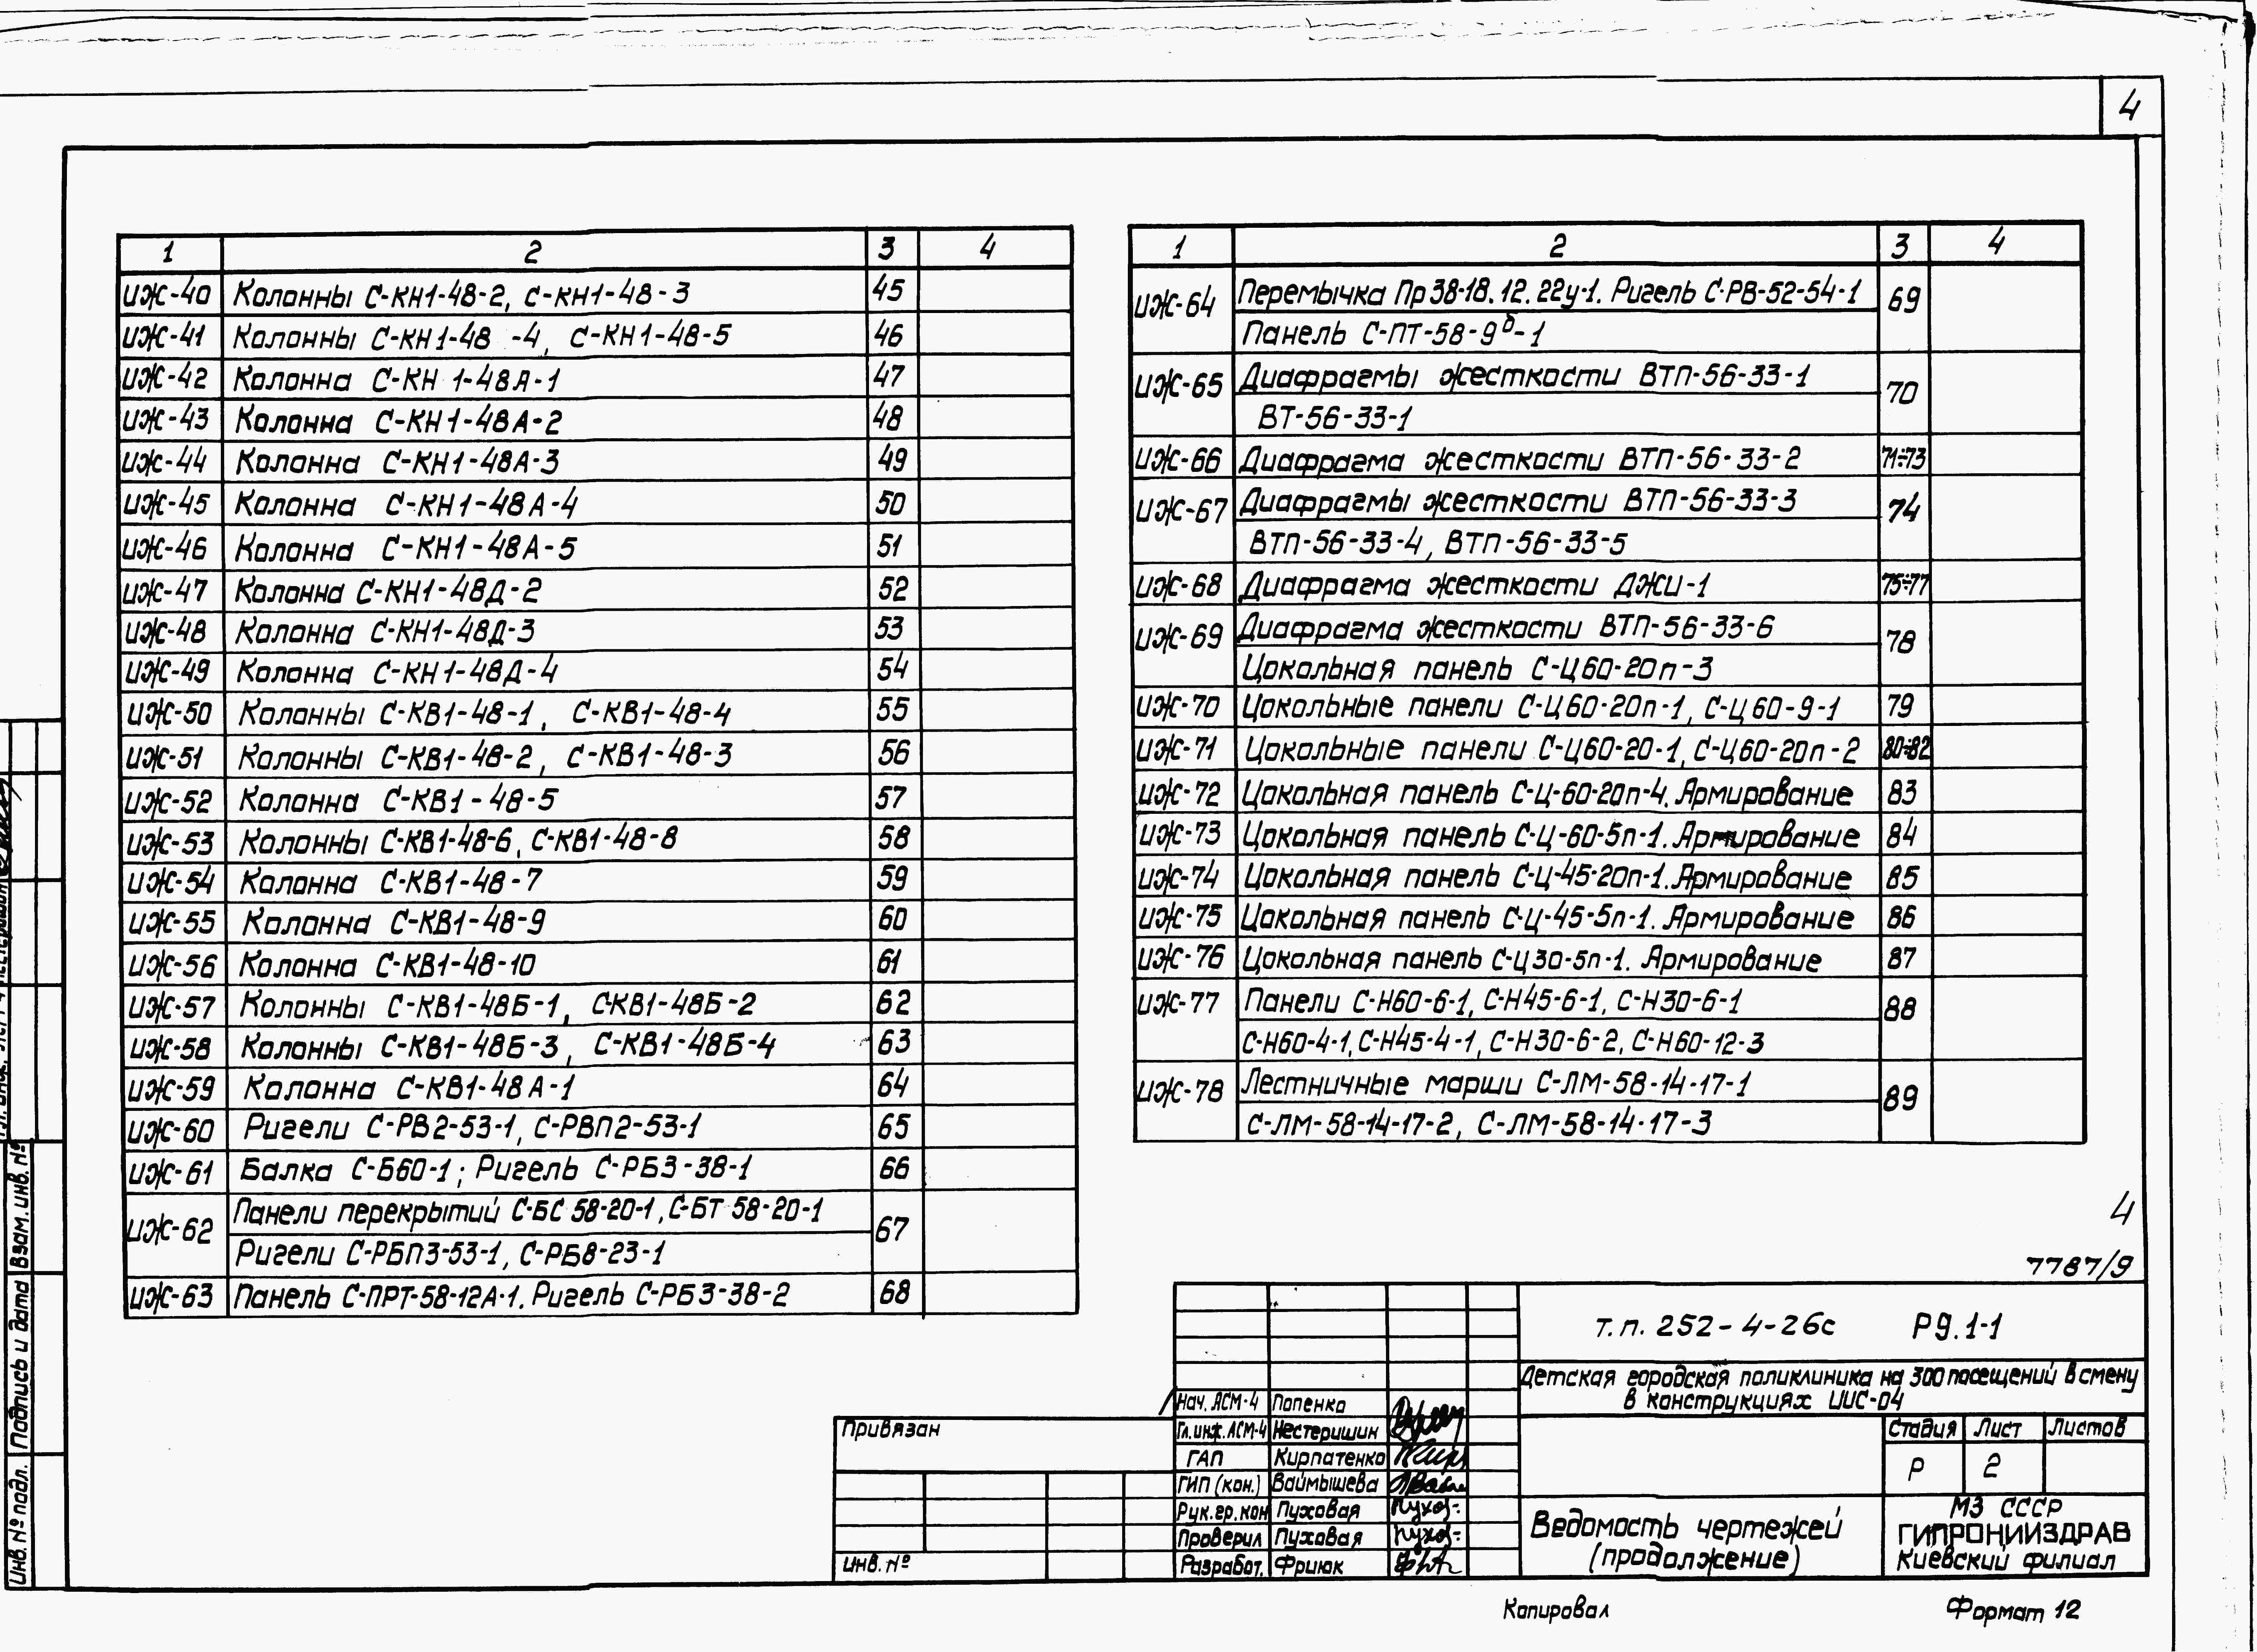 4
1 2 3 4
ИЖ-40 Колонны С-КН1-48-2, С-КН1-48-3 45
ИЖ-41 Колонны С-КН1-48 -4, С-КН1-48-5 46
ИЖ-42 Колонна С-КН 1-48А-1 47
ИЖ-43 Колонна С-КН1-48А-2 48
ИЖ-44 Колонна С-КН1-48А-3 49
ИЖ-45 Колонна С-КН1-48А-4 50
ИЖ-46 Колонна С-КН1-48А-5 51
ИЖ-47 Колонна С-КН1-48Д-2 52
ИЖ-48 Колонна С-КН1-48Д-3 53
ИЖ-49 Колонна С-КН1-48Д-4 54
ИЖ-50 Колонны С-КВ1-48-1, С-КВ1-48-4 55
ИЖ-51 Колонны С-КВ1-48-2, С-КВ1-48-3 56
ИЖ-52 Колонна С-КВ1-48-5 57
ИЖ-53 Колонны С-КВ1-48-6, С-КВ1-48-8 58
ИЖ-54 Колонна С-КВ1-48-7 59
ИЖ-55 Колонна С-КВ1-48-9 60
ИЖ-56 Колонна С-КВ1-48-10 61
ИЖ-57 Колонны С-КВ1-48Б-1, СКВ1-48Б-2 62
ИЖ-58 Колонны С-КВ1-48Б-3, С-КВ1-48Б-4 63
ИЖ-59 Колонна С-КВ1-48А-1 64
ИЖ-60 Ригели С-РВ2-53-1, С-РВП2-53-1 65
ИЖ-61 Балка С-Б60-1; Ригель С-РБ3-38-1 66
ИЖ-62 Панели перекрытий С-БС 58-20-1, С-БТ 58-20-1 67
Ригели С-РБП3-53-1, С-РБ8-23-1
ИЖ-63 Панель С-ПРТ-58-12А-1. Ригель С-РБ3-38-2 68
1 2 3 4
ИЖ-64 Перемычка Пр38-18.12.22у-1. Ригель С-РВ-52-54-1 69
Панель С-ПТ-58-9б-1
ИЖ-65 Диафрагмы жесткости ВТП-56-33-1 70
ВТ-56-33-1
ИЖ-66 Диафрагма жесткости ВТП-56-33-2 71÷73
ИЖ-67 Диафрагмы жесткости ВТП-56-33-3 74
ВТП-56-33-4, ВТП-56-33-5
ИЖ-68 Диафрагма жесткости ДЖИ-1 75÷77
ИЖ-69 Диафрагма жесткости ВТП-56-33-6 78
Цокольная панель С-Ц60-20п-3
ИЖ-70 Цокольные панели С-Ц60-20п-1, С-Ц60-9-1 79
ИЖ-71 Цокольные панели С-Ц60-20-1, С-Ц60-20п-2 80÷82
ИЖ-72 Цокольная панель С-Ц-60-20п-4. Армирование 83
ИЖ-73 Цокольная панель С-Ц-60-5п-1. Армирование 84
ИЖ-74 Цокольная панель С-Ц-45-20п-1. Армирование 85
ИЖ-75 Цокольная панель С-Ц-45-5п-1. Армирование 86
ИЖ-76 Цокольная панель С-Ц30-5п-1. Армирование 87
ИЖ-77 Панели С-Н60-6-1, С-Н45-6-1, С-Н30-6-1 88
С-Н60-4-1, С-Н45-4-1, С-Н30-6-2, С-Н60-12-3
ИЖ-78 Лестничные марши С-ЛМ-58-14-17-1 89
С-ЛМ-58-14-17-2, С-ЛМ-58-14-17-3
4
7787/9
т.п. 252-4-26с Р9.1-1
Детская городская поликлиника на 300 посещений в смену
в конструкциях ИИС-04
Привязан
Инв. №
Нач. АСМ-4 Попенко
Гл. инж. АСМ-4 Нестеришин
ГАП Кирпатенко
ГИП (кон.) Ваймышева
Рук. гр. кон Пуховая
Проверил Пуховая
Разработ. Фриюк
Стадия Лист Листов
Р 2
Ведомость чертежей
(продолжение)
МЗ СССР
ГИПРОНИИЗДРАВ
Киевский филиал
Копировал
Формат 12
Взам. инв. №
Подпись и дата
Инв. № подл.